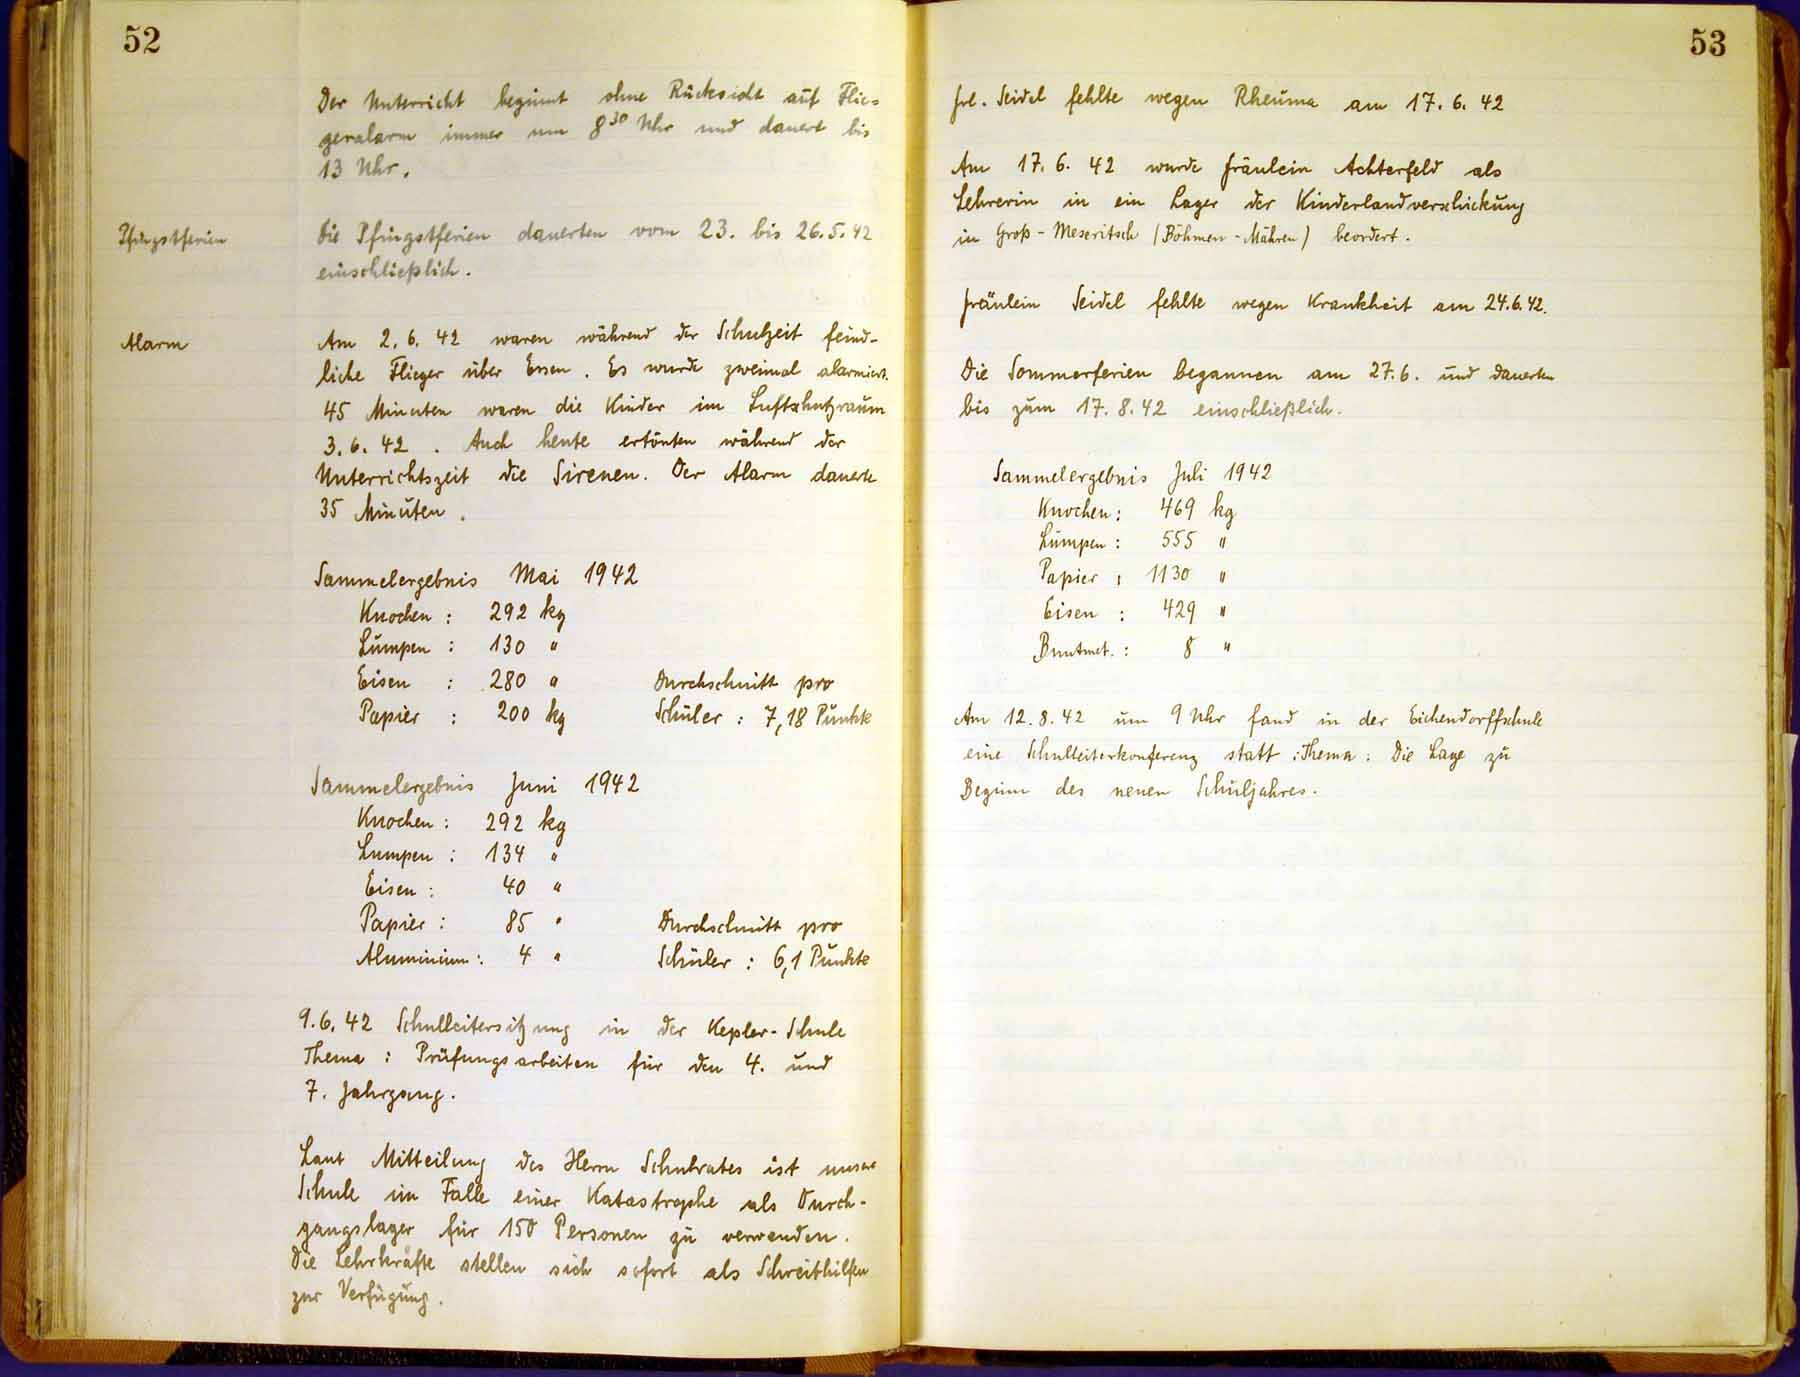 52
Der Unterricht beginnt ohne Rücksicht auf Flie-
geralarm immer um 8³⁰ Uhr und dauert bis
13 Uhr.
Pfingstferien
Die Pfingstferien dauerten vom 23. bis 26.5.42
einschließlich.
Alarm
Am 2.6.42 waren während der Schulzeit feind-
liche Flieger über Essen. Es wurde zweimal alarmiert.
45 Minuten waren die Kinder im Luftschutzraum
3.6.42. Auch heute ertönten während der
Unterrichtszeit die Sirenen. Der Alarm dauerte
35 Minuten.
Sammelergebnis Mai 1942
Knochen: 292 kg
Lumpen: 130 "
Eisen: 280 " Durchschnitt pro
Papier: 200 kg Schüler: 7,18 Punkte
Sammelergebnis Juni 1942
Knochen: 292 kg
Lumpen: 134 "
Eisen: 40 "
Papier: 85 " Durchschnitt pro
Aluminium: 4 " Schüler: 6,1 Punkte
9.6.42 Schulleitersitzung in der Kepler-Schule
Thema: Prüfungsarbeiten für den 4. und
7. Jahrgang.
Laut Mitteilung des Herrn Schulrates ist unsere
Schule im Falle einer Katastrophe als Durch-
gangslager für 150 Personen zu verwenden.
Die Lehrkräfte stellen sich sofort als Schreibhilfen
zur Verfügung.
53
Frl. Seidel fehlte wegen Rheuma am 17.6.42
Am 17.6.42 wurde Fräulein Achterfeld als
Lehrerin in ein Lager der Kinderlandverschickung
in Groß-Meseritsch (Böhmen-Mähren) beordert.
Fräulein Seidel fehlte wegen Krankheit am 24.6.42.
Die Sommerferien begannen am 27.6. und dauerten
bis zum 17.8.42 einschließlich.
Sammelergebnis Juli 1942
Knochen: 469 kg
Lumpen: 555 "
Papier: 1130 "
Eisen: 429 "
Buntmet.: 8 "
Am 12.8.42 um 9 Uhr fand in der Eichendorffschule
eine Schulleiterkonferenz statt: Thema: Die Lage zu
Beginn des neuen Schuljahres.